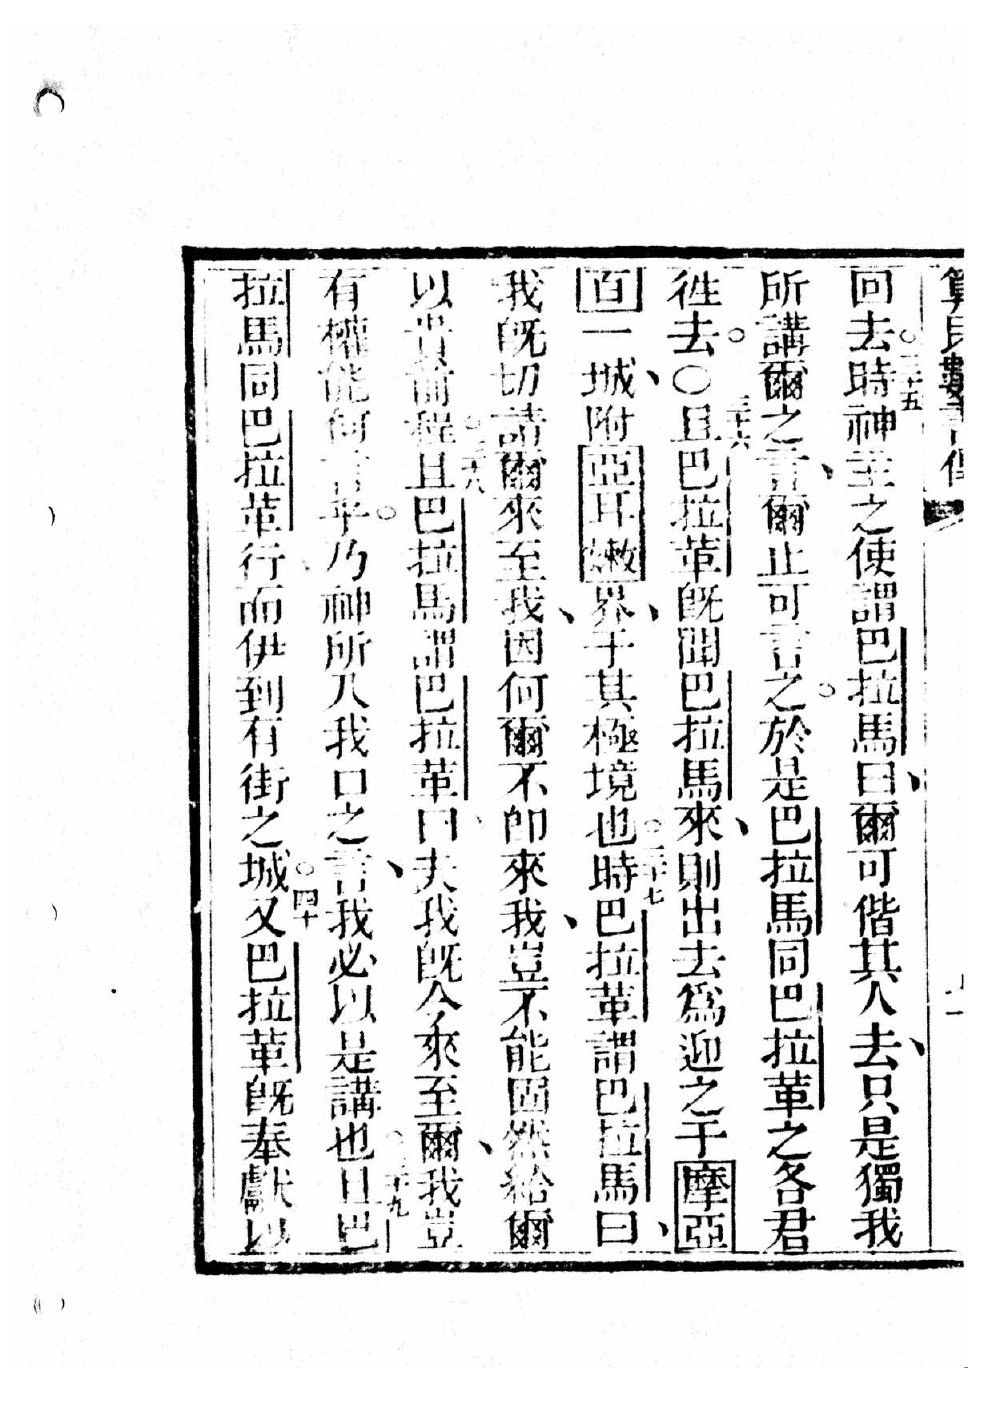 算民數書傳
回去時○三十五神主之使謂巴拉馬曰、爾可偕其人去、只是獨我
所講爾之言、爾止可言之○於是巴拉馬同巴拉革之各君
徃去○○三十六且巴拉革既聞巴拉馬來、則出去為迎之于摩亞
百一城、附亞耳嫩界、于其極境也○三十七時巴拉革謂巴拉馬曰、
我既切請爾來至我、因何爾不即來我、豈不能固然給爾
以貴前程○三十八且巴拉馬謂巴拉革曰、夫我既今來至爾、我豈
有權能何言乎○乃神所入我口之言、我必以是講也○三十九且巴
拉馬同巴拉革行而伊到有街之城○四十又巴拉革既奉獻以